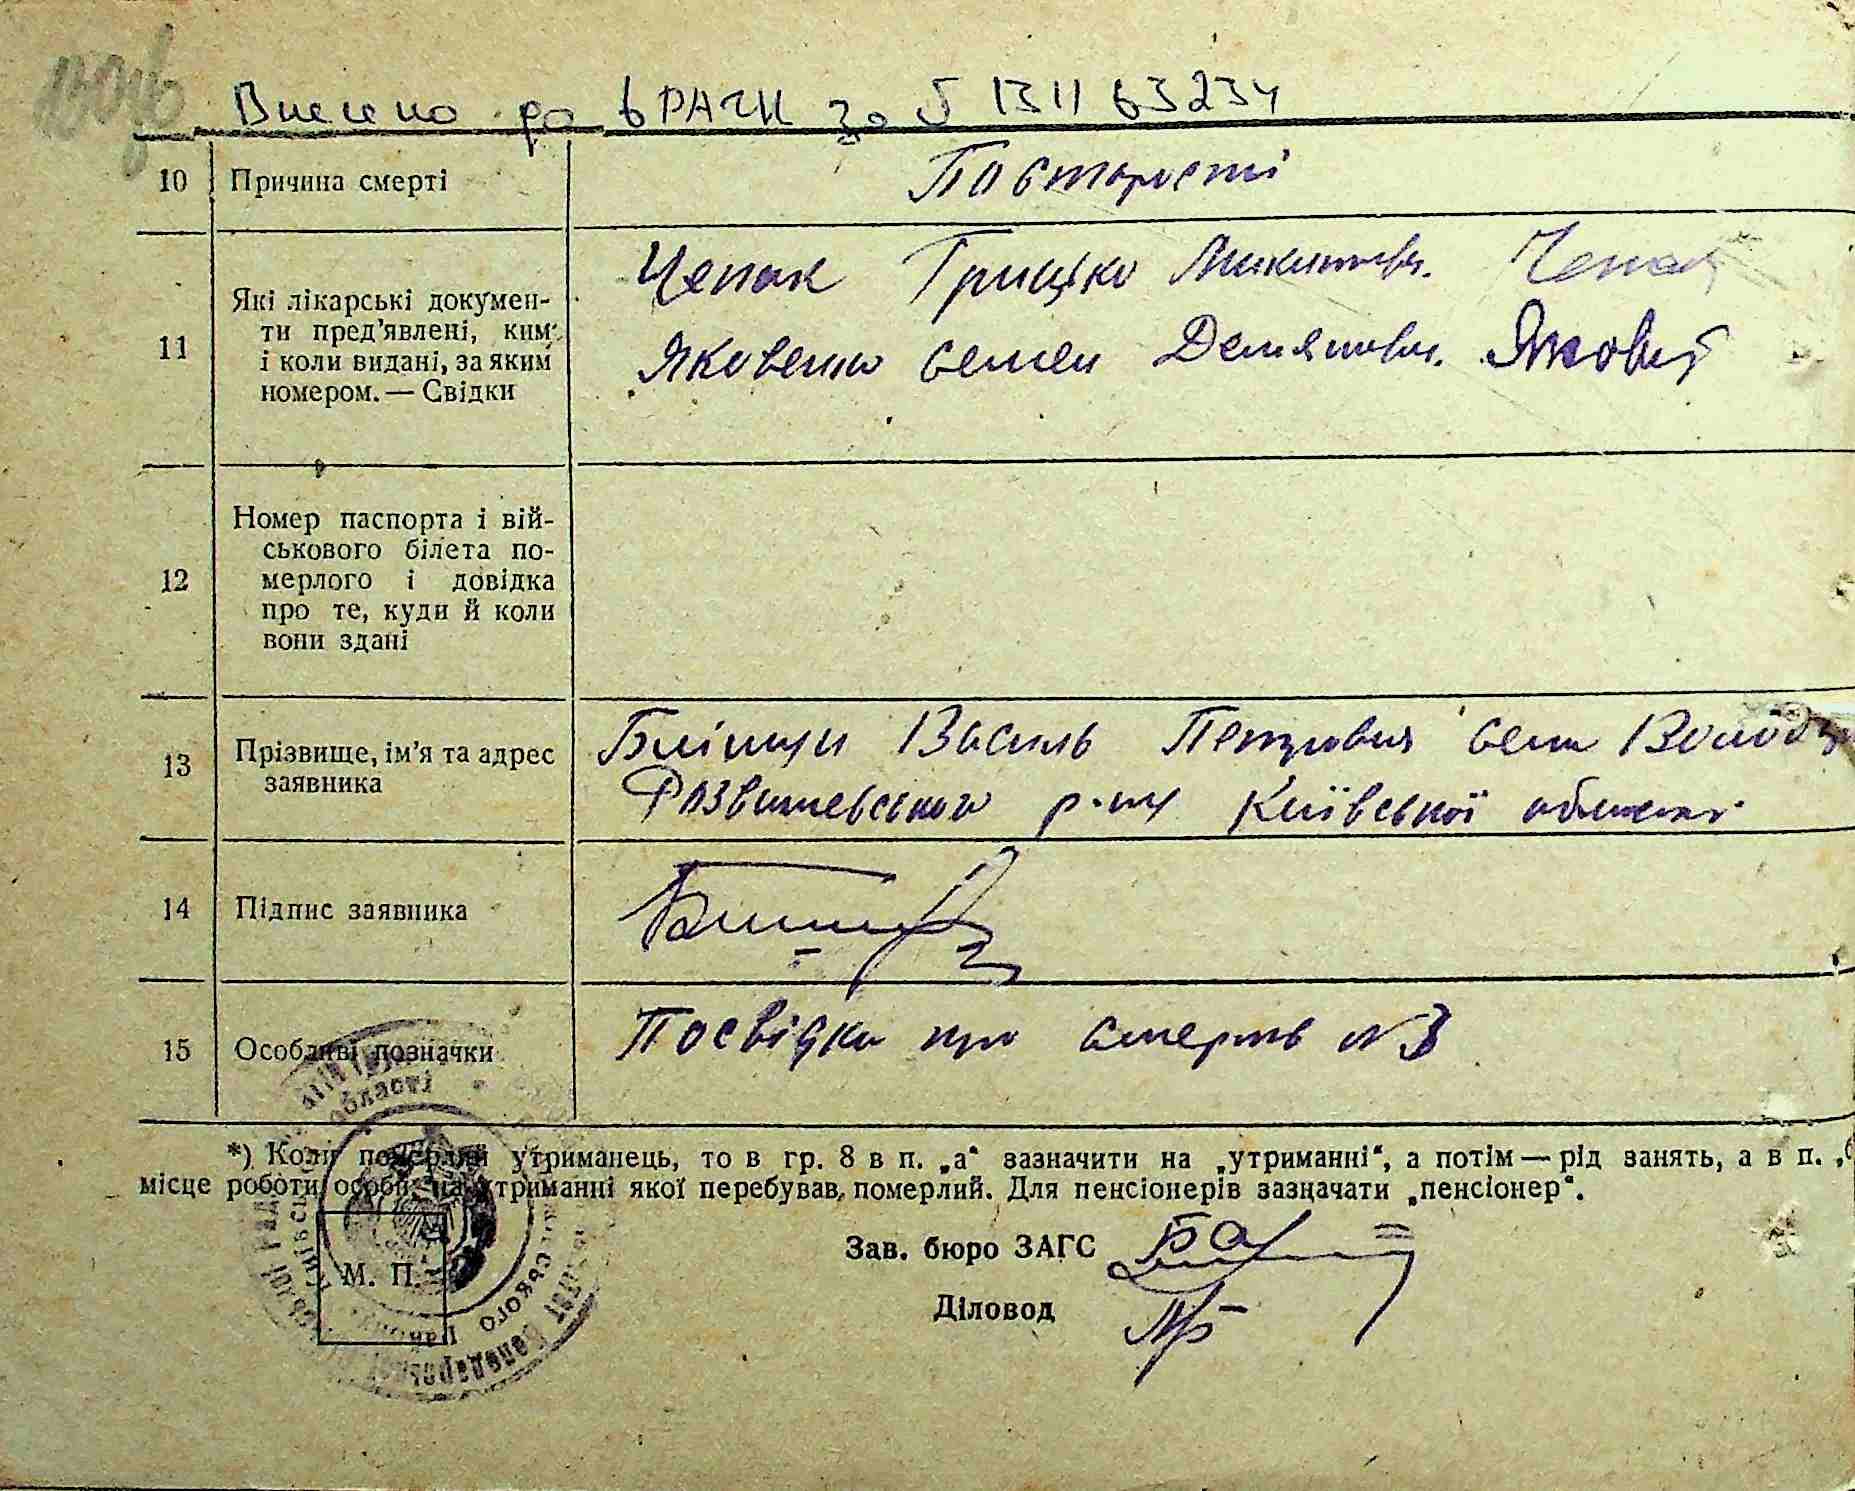 Внесено до вРАЦС за 5 1311 63234
10 Причина смерті По старості
11 Які лікарські докумен-
ти пред'явлені, ким
і коли видані, за яким
номером. — Свідки
Чепак Грицько Микитович. Чепак
Яковенко Семен Демянович.
12 Номер паспорта і вій-
ськового білета по-
мерлого і довідка
про те, куди й коли
вони здані
13 Прізвище, ім'я та адрес
заявника
Василь Петрович село
р-ну Київської області
14 Підпис заявника
15 Особливі позначки Посвідка про смерть № 3
*) Коли померлий утриманець, то в гр. 8 в п. „а“ зазначити на „утриманні“, а потім — рід занять, а в п.
місце роботи особи, на утриманні якої перебував померлий. Для пенсіонерів зазначати „пенсіонер“.
Зав. бюро ЗАГС
М. П.
Діловод
області